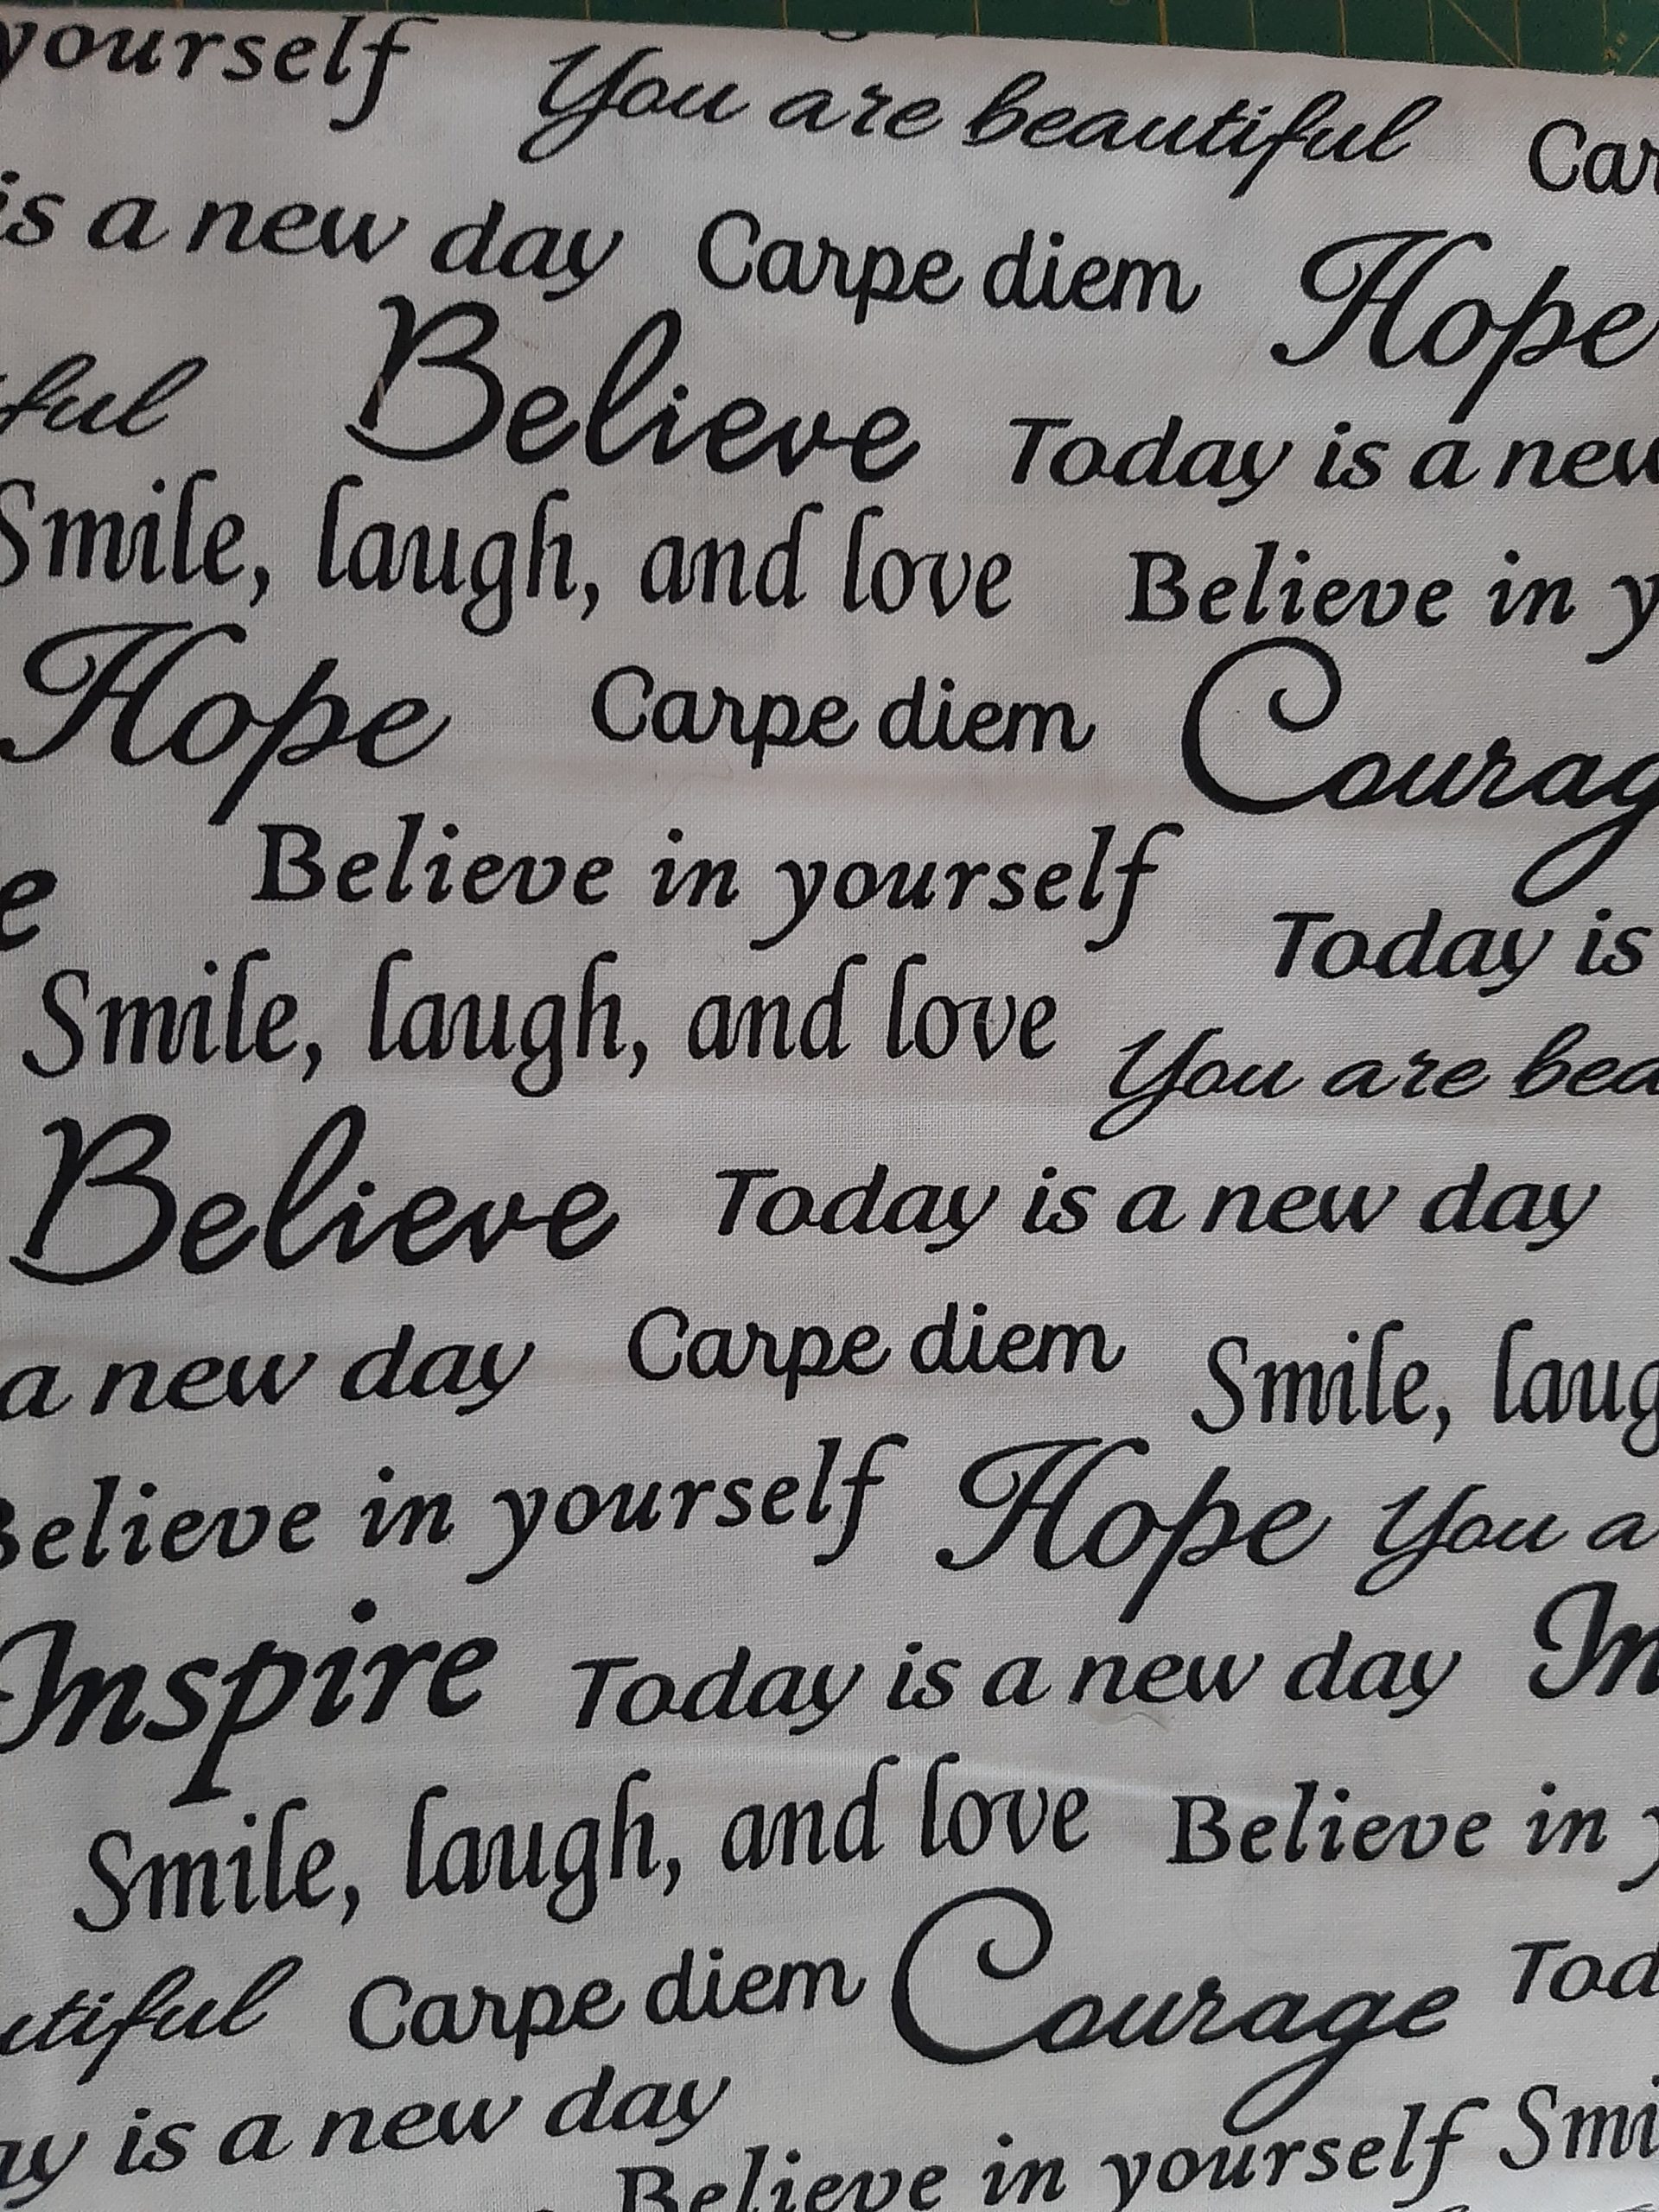 yourself You are beautiful Car
is a new day Carpe diem Hope
ful Believe Today is a new
Smile, laugh, and love Believe in y
Hope Carpe diem Courag
e Believe in yourself Today is
Smile, laugh, and love You are bea
Believe Today is a new day
a new day Carpe diem Smile, laug
Believe in yourself Hope You a
Inspire Today is a new day In
Smile, laugh, and love Believe in y
utiful Carpe diem Courage Tod
ay is a new day
Believe in yourself Smi